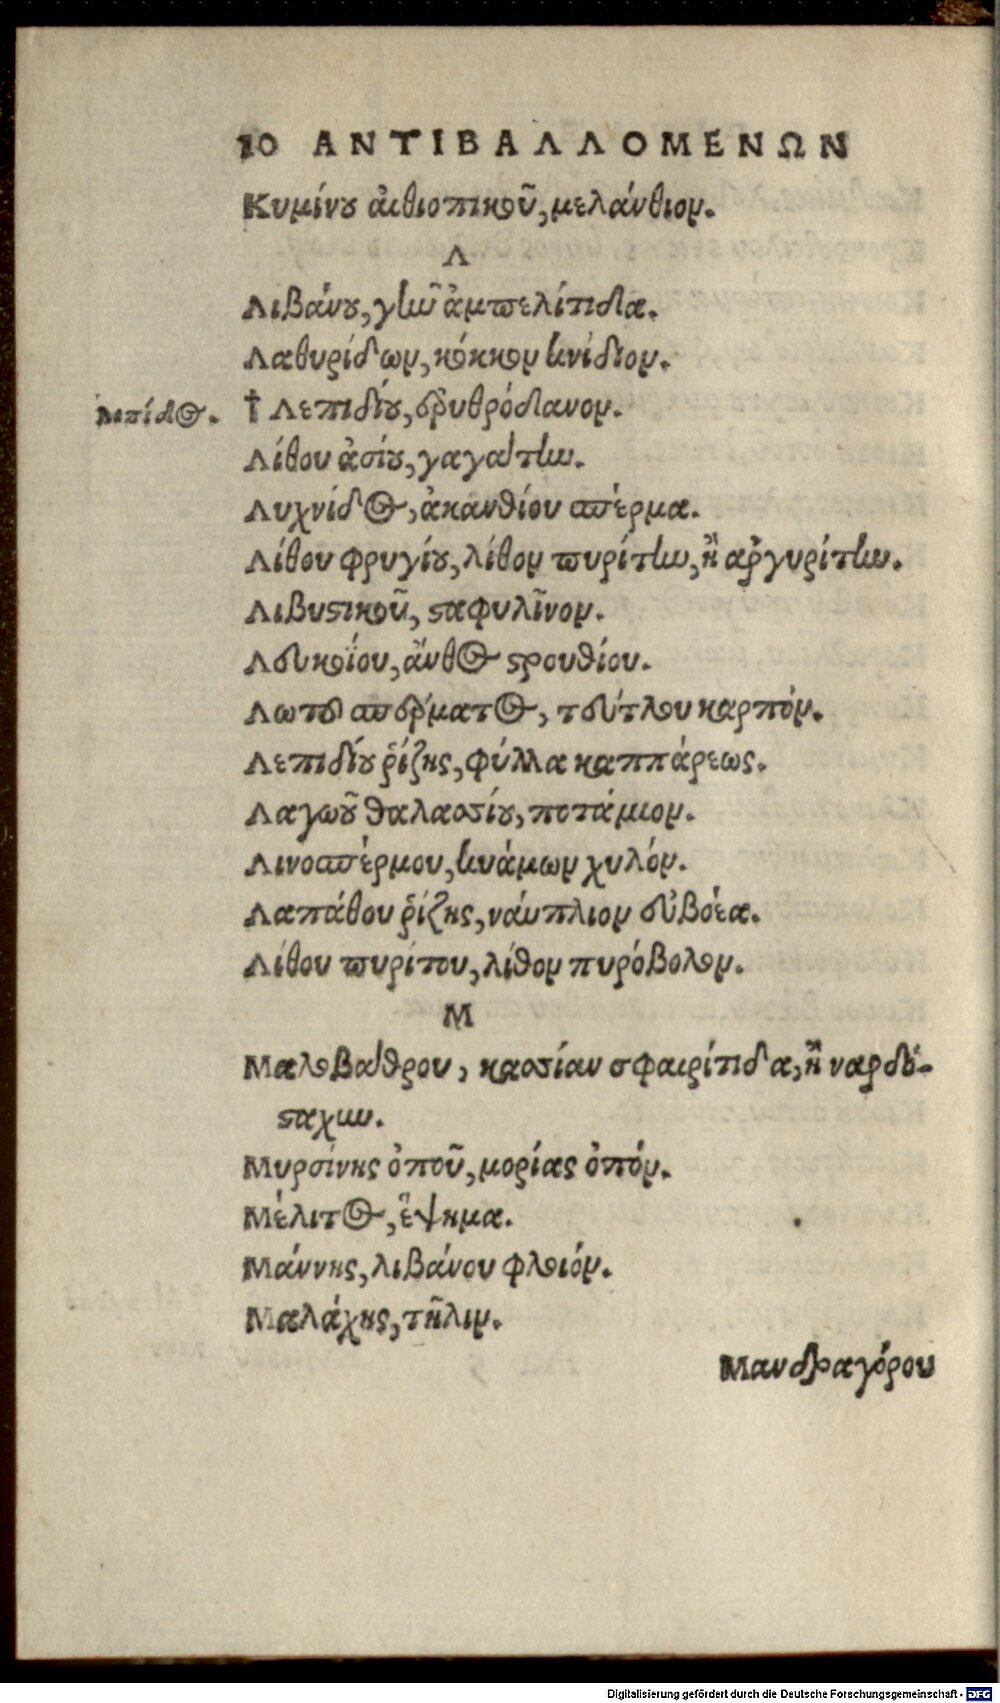 10 ΑΝΤΙΒΑΛΛΟΜΕΝΩΝ
Κυμίνου αἰθιοπικοῦ, μελάνθιον.
Λ
Λιβάνου, γῆν ἀμπελίτιδα.
Λαθυρίδων, κόκκον κνίδιον.
† Λεπιδίου, ἐρυθρόδανον.
Λίθου ἀσίου, γαγάτην.
Λυχνίδος, ἀκανθίου σπέρμα.
Λίθου φρυγίου, λίθον πυρίτην, ἢ ἀργυρίτην.
Λιβυστικοῦ, σταφυλῖνον.
Λευκοΐου, ἄνθος στρουθίου.
Λωτοῦ σπέρματος, τεύτλου καρπόν.
Λεπιδίου ῥίζης, φύλλα καππάρεως.
Λαγωοῦ θαλασσίου, ποτάμιον.
Λινοσπέρμου, κυάμων χυλόν.
Λαπάθου ῥίζης, νάυπλιον εὐβοέα.
Λίθου πυρίτου, λίθον πυρόβολον.
Μ
Μαλοβάθρου, κασσίαν σφαιρίτιδα, ἢ ναρδό-
σταχυν.
Μυρσίνης ὀποῦ, μορίας ὀπόν.
Μέλιτος, ἕψημα.
Μάννης, λιβάνου φλοιόν.
Μαλάχης, τῆλιν.
Μανδραγόρου
Digitalisierung gefördert durch die Deutsche Forschungsgemeinschaft - DFG